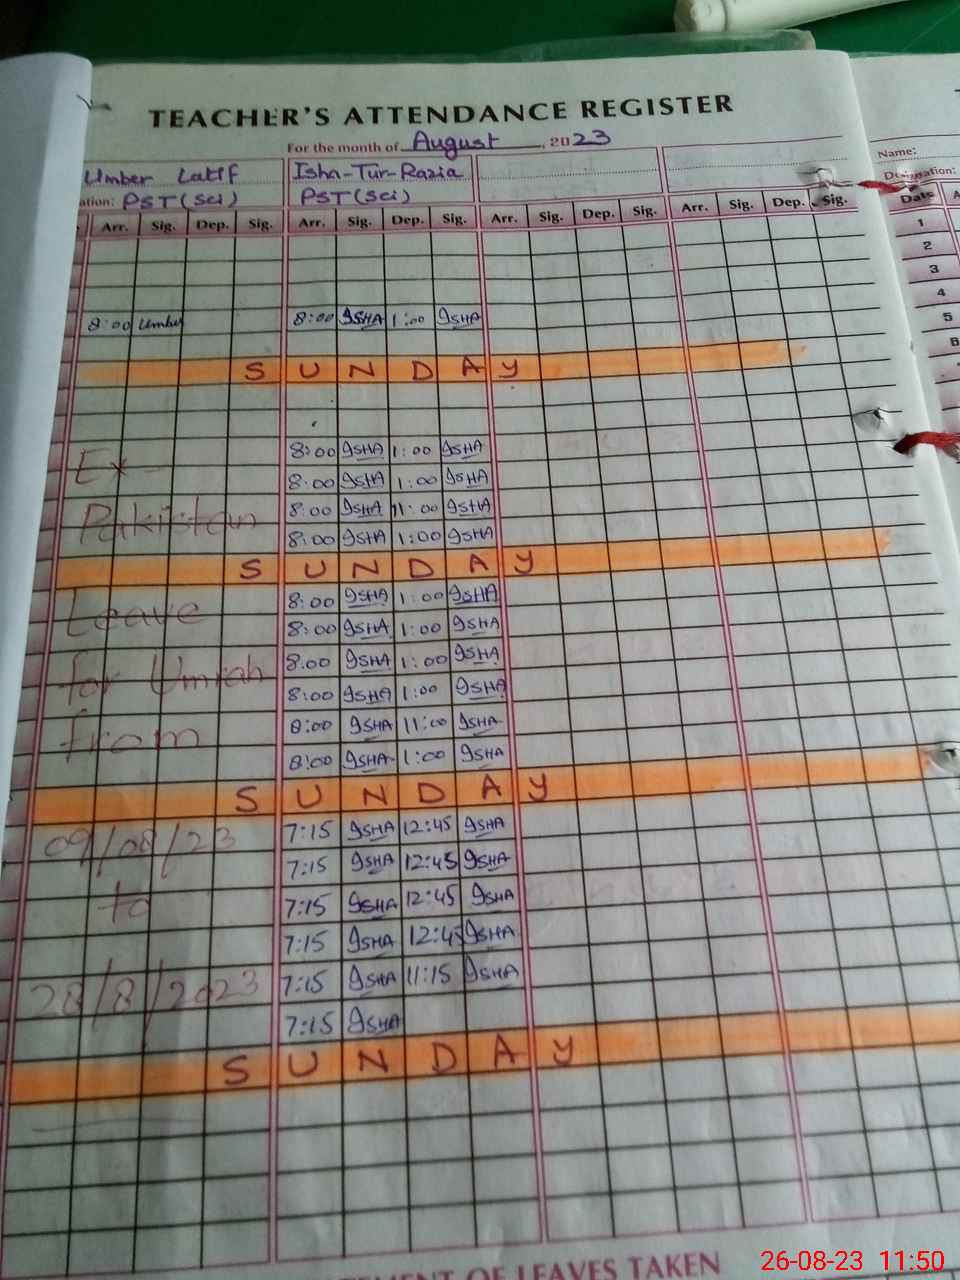 TEACHER'S ATTENDANCE REGISTER
For the month of August, 2023
Umber Latif Isha-Tur-Razia Name:
ation: PST (Sci) PST (Sci) Designation:
Arr. Sig. Dep. Sig. Arr. Sig. Dep. Sig. Arr. Sig. Dep. Sig. Arr. Sig. Dep. Sig. Date
1
2
3
4
8:00 Umber 8:00 ISHA 1:00 ISHA 5
6
SUNDAY
8:00 ISHA 1:00 ISHA
Ex 8:00 ISHA 1:00 ISHA
Pakistan 8:00 ISHA 11:00 ISHA
8:00 ISHA 1:00 ISHA
SUNDAY
Leave 8:00 ISHA 1:00 ISHA
8:00 ISHA 1:00 ISHA
for Umrah 8:00 ISHA 1:00 ISHA
8:00 ISHA 1:00 ISHA
from 8:00 ISHA 11:00 ISHA
8:00 ISHA 1:00 ISHA
SUNDAY
09/08/23 7:15 ISHA 12:45 ISHA
7:15 ISHA 12:45 ISHA
to 7:15 ISHA 12:45 ISHA
7:15 ISHA 12:45 ISHA
28/8/2023 7:15 ISHA 11:15 ISHA
7:15 ISHA
SUNDAY
EMENT OF LEAVES TAKEN
26-08-23 11:50